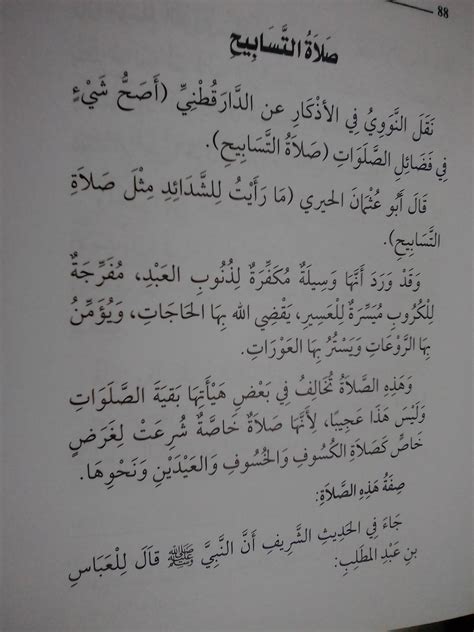 88
صَلَاةُ التَّسَابِيحِ
نَقَلَ النَّوَوِيُّ فِي الأَذْكَارِ عن الدَّارَقُطْنِيِّ (أَصَحُّ شَيْءٍ
فِي فَضَائِلِ الصَّلَوَاتِ (صَلَاةُ التَّسَابِيحِ).
قَالَ أَبُو عُثْمَانَ الحيري (مَا رَأَيْتُ لِلشَّدَائِدِ مِثْلَ صَلَاةِ
التَّسَابِيحِ).
وَقَدْ وَرَدَ أَنَّهَا وَسِيلَةٌ مُكَفِّرَةٌ لِذُنُوبِ العَبْدِ، مُفَرِّجَةٌ
لِلْكُرُوبِ مُيَسِّرَةٌ لِلْعَسِيرِ، يَقْضِي الله بِهَا الحَاجَاتِ، وَيُؤَمِّنُ
بِهَا الرَّوْعَاتِ وَيَسْتُرُ بِهَا العَوْرَاتِ.
وَهَذِهِ الصَّلَاةُ تُخَالِفُ فِي بَعْضِ هَيْأَتِهَا بَقِيَةَ الصَّلَوَاتِ
وَلَيْسَ هَذَا عَجِيبًا، لِأَنَّهَا صَلَاةٌ خَاصَّةٌ شُرِعَتْ لِغَرَضٍ
خَاصٍّ كَصَلَاةِ الكُسُوفِ وَالخُسُوفِ وَالعَيْدَيْنِ وَنَحْوِهَا.
صِفَةُ هَذِهِ الصَّلَاةِ:
جَاءَ فِي الحَدِيثِ الشَّرِيفِ أَنَّ النَّبِيَّ ﷺ قَالَ لِلْعَبَاسِ
بنِ عَبْدِ المطَلِبِ: